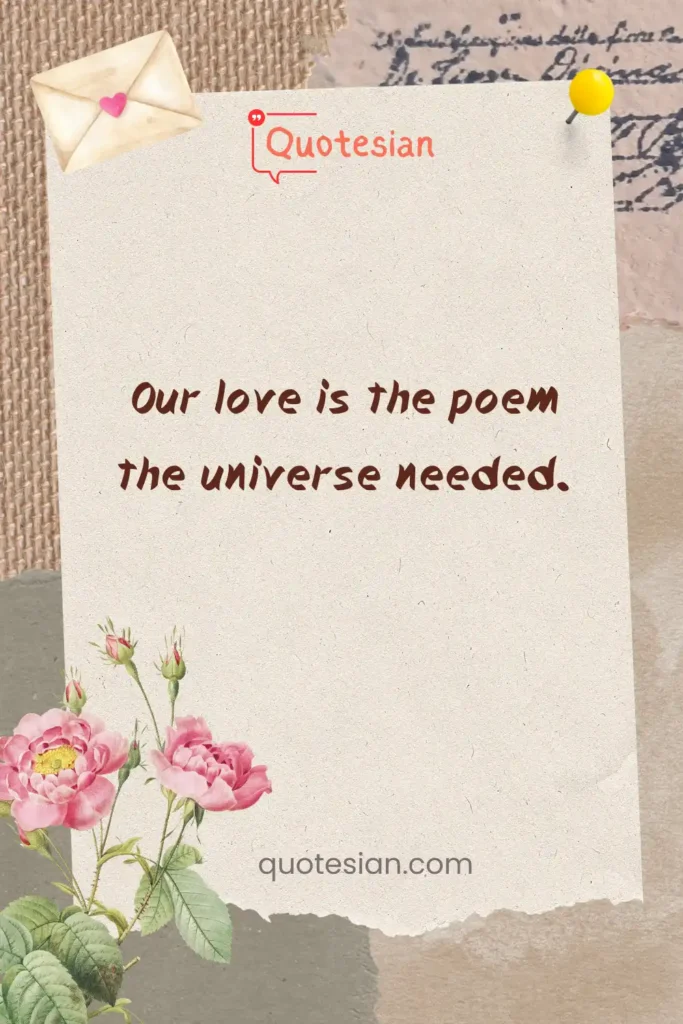 Quotesian
Our love is the poem
the universe needed.
quotesian.com